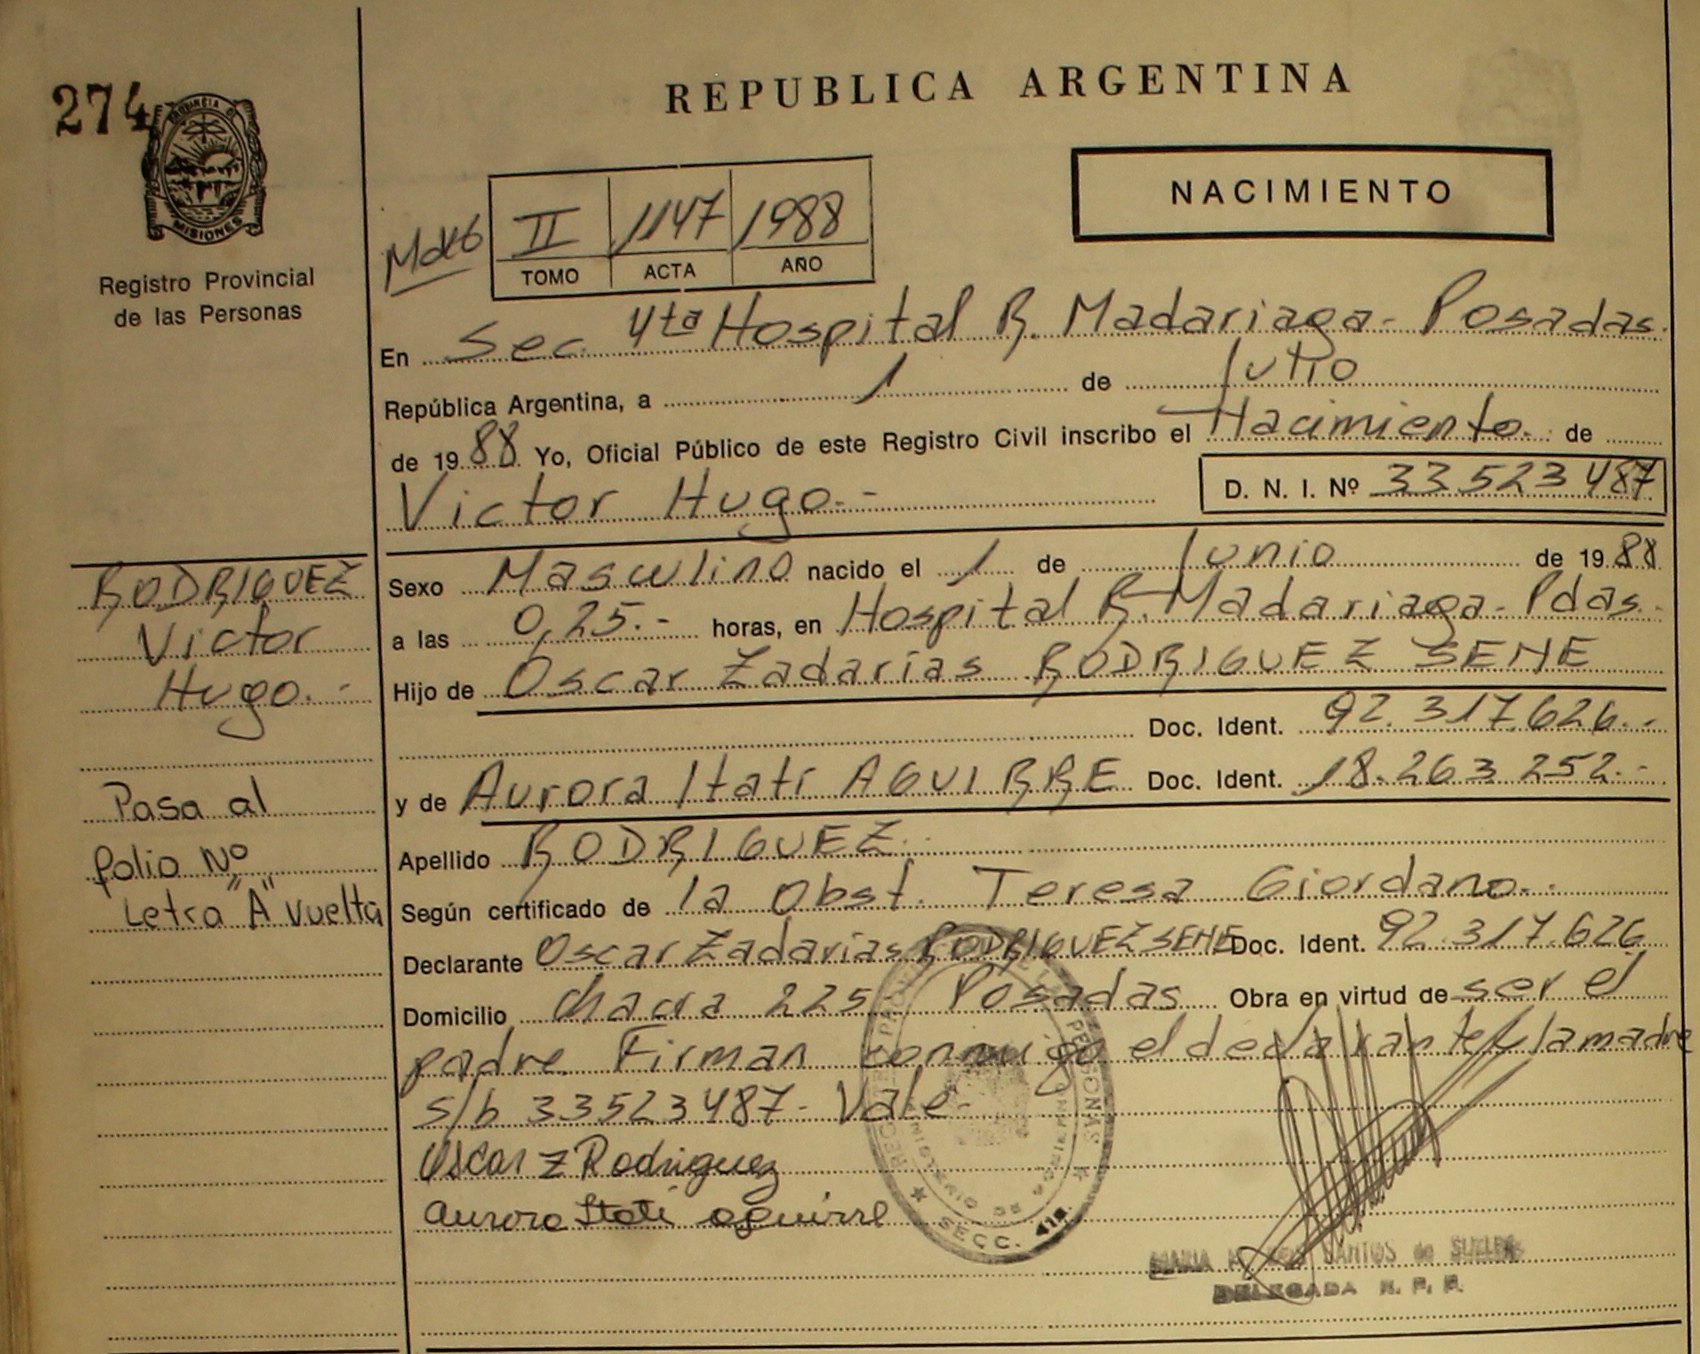 274
PROVINCIA D
MISIONES
Registro Provincial
de las Personas
REPUBLICA ARGENTINA
NACIMIENTO
II 1147 1988
TOMO ACTA AÑO
En Sec. 4ta Hospital R. Madariaga - Posadas.
República Argentina, a 1 de Julio
de 1988 Yo, Oficial Público de este Registro Civil inscribo el Nacimiento. de
Victor Hugo.- D. N. I. Nº 33523487
RODRIGUEZ
Victor
Hugo.-
Sexo Masculino nacido el 1 de Junio de 1988
a las 0,25.- horas, en Hospital R. Madariaga - Pdas.
Hijo de Oscar Zadarías RODRIGUEZ SENE
Doc. Ident. 92.317.626.-
y de Aurora Itatí AGUIRRE Doc. Ident. 18.263.252.-
Pasa al
folio Nº
Letra "A" Vuelta
Apellido RODRIGUEZ.
Según certificado de la Obst. Teresa Giordano.
Declarante Oscar Zadarías RODRIGUEZ SENE Doc. Ident. 92.317.626
Domicilio Chacra 225 Posadas Obra en virtud de ser el
padre. Firman conmigo el declarante y la madre
s/b 33523487- Vale-
Oscar Z Rodriguez
Aurora Itati aguirre
PERSONAS
MINISTERIO DE GOBIERNO
SECC. 4ta.
SANTOS de
DELEGADA R. P. P.